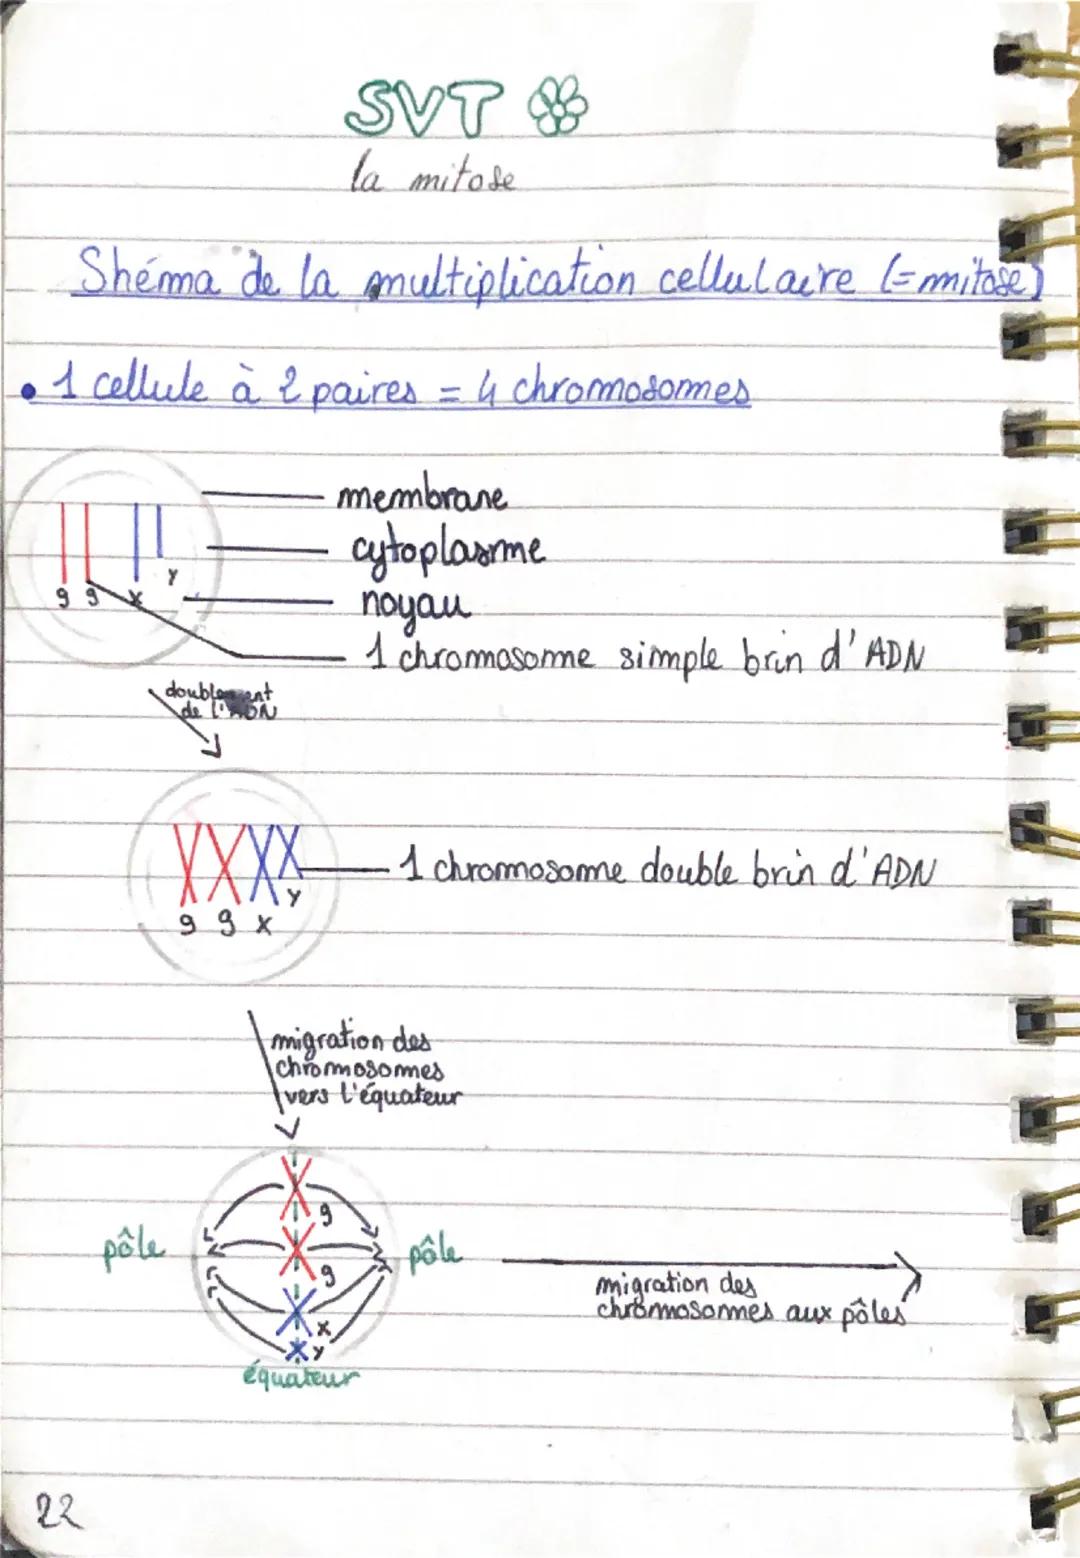 SVT
la mitose
Shéma de la multiplication cellulaire (=mitose)
• 1 cellule à 2 paires = 4 chromosomes
membrane
cytoplasme
noyau
1 chromosome simple brin d'ADN
9 9 x y
doublement
de l'ADN
1 chromosome double brin d'ADN
9 9 x y
migration des
chromosomes
vers l'équateur
pôle
9
9
x
y
pôle
équateur
migration des
chromosomes aux pôles
22